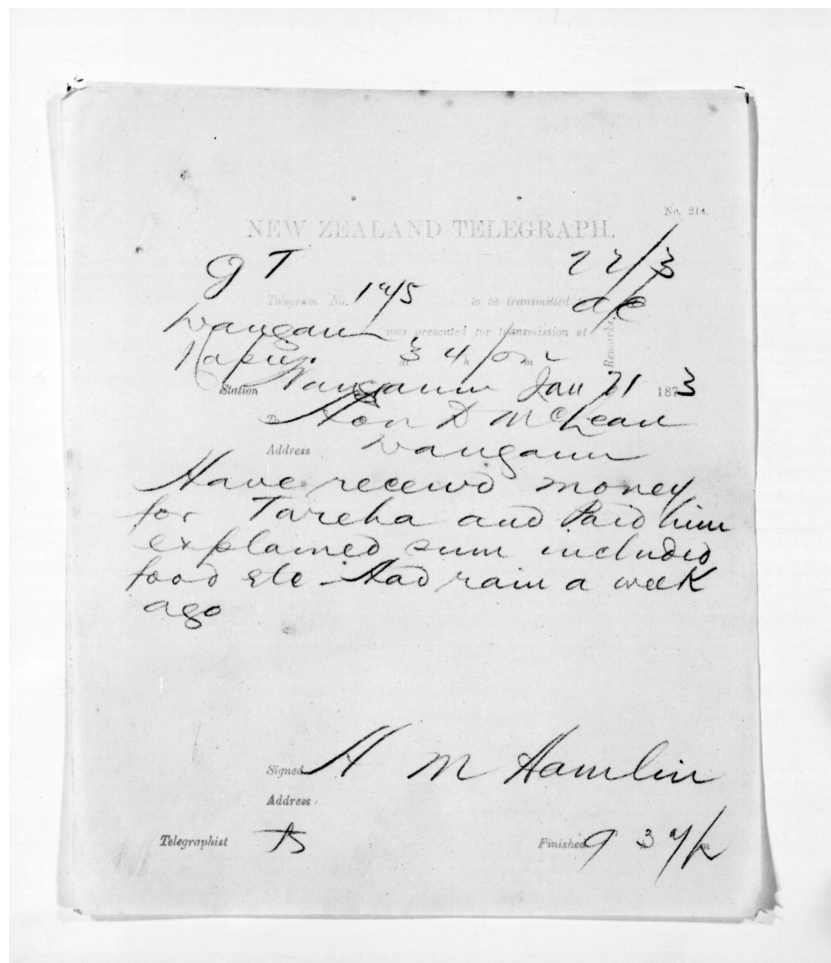 No. 214.
NEW ZEALAND TELEGRAPH.
G T 22/3
Telegram No. to be transmitted to
Wanganui was presented for transmission at
Napier 3 4 h pm m Remarks.
Station Wanganui Jan 21 1873
To Hon D McLean
Address Wanganui
Have received money
for Tareha and Paid him
explained sum included
food etc Had rain a week
ago
Signed H M Hamlin
Address
Telegraphist
Finished 9 3